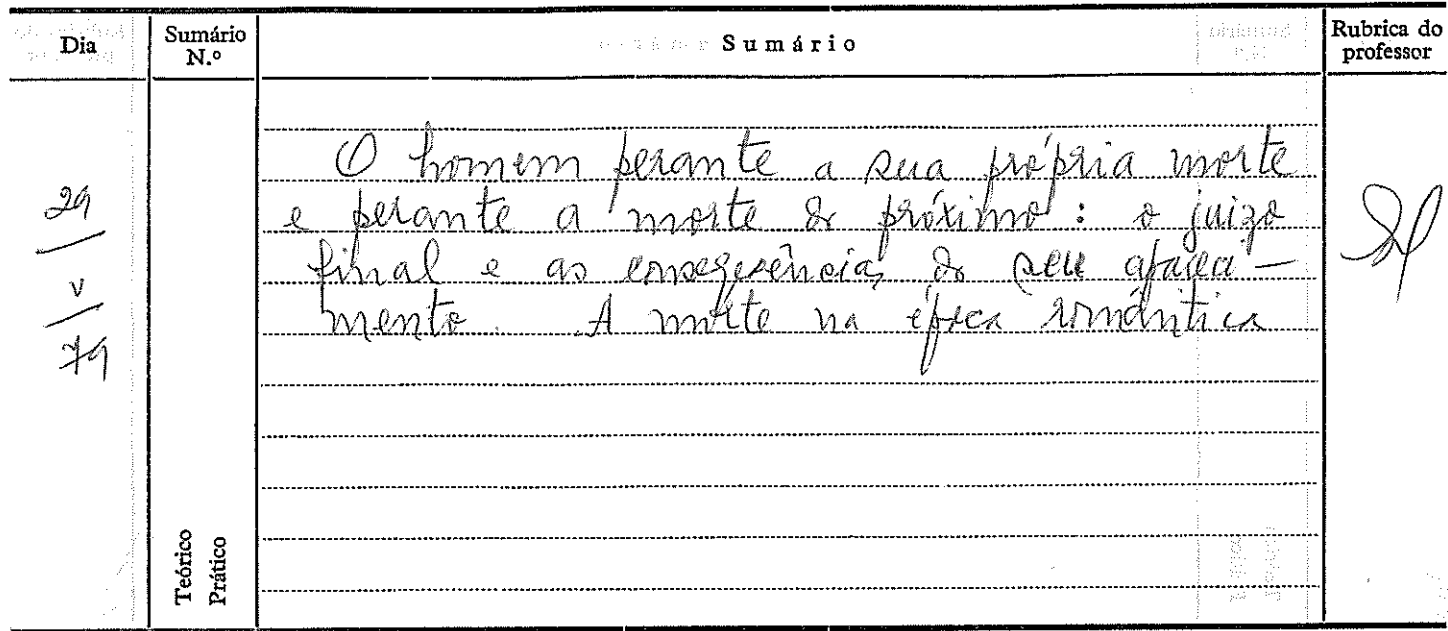 Dia
Sumário N.º
Sumário
Rubrica do professor
29
V
79
O homem perante a sua própria morte
e perante a morte do próximo: o juizo
final e as consequências do seu apareci-
mento. A morte na época romántica
Teórico
Prático